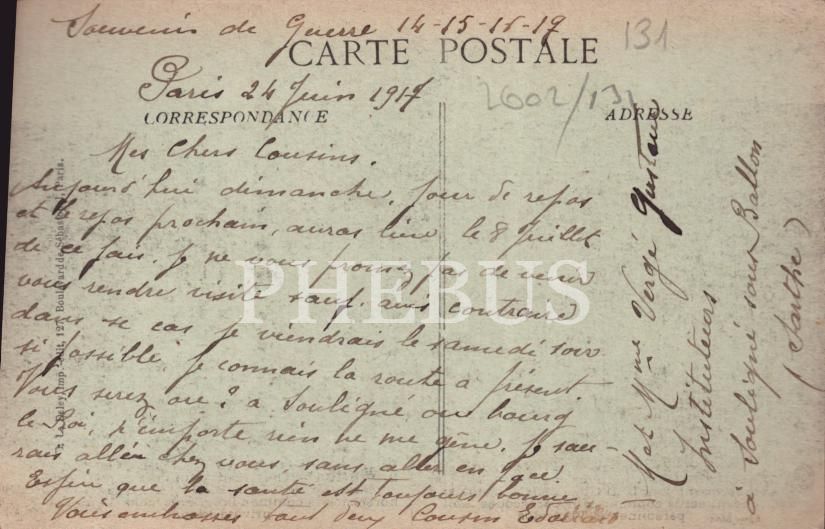 Souvenir de Guerre 14-15-16-17
131
CARTE POSTALE
Paris 24 Juin 1917
2602/131
CORRESPONDANCE
ADRESSE
Mes Chers Cousins.
Aujourd'hui dimanche, jour de repos
et le repos prochain, auras lieu le 8 Juillet
de ce fais. Je ne vous promez pas de venir
vous rendre visite sauf avis contraire
dans se cas je viendrais le samedi soir
si possible, je connais la route à présent
Vous serez ou? a Souligné ou bourg
le Roi, n'importe rien ne me gêne. Je sau-
rais aller chez vous, sans aller en
Enfin que la santé est toujours bonne
Vous embrasses tout deux Cousin Edouard
M et Mme Vergé Gustave
Instituteurs
à Souligné sous Ballon
(Sarthe)
Le Deley, Imp.-Edit., 127, Boulevard de Sébastopol, Paris.
PHEBUS